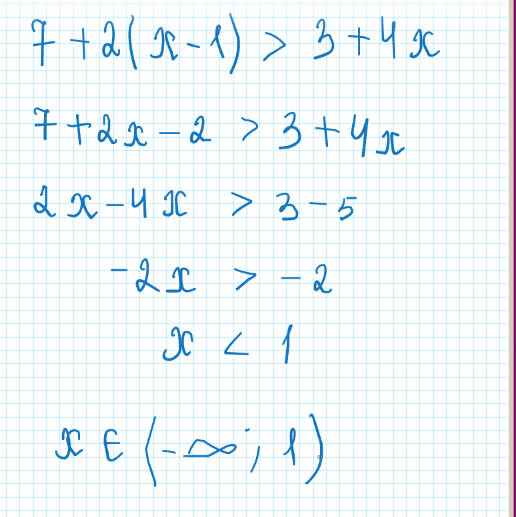 7+2(x-1) > 3+4x
7+2x-2 > 3+4x
2x-4x > 3-5
-2x > -2
x < 1
x ∈ (-∞; 1)